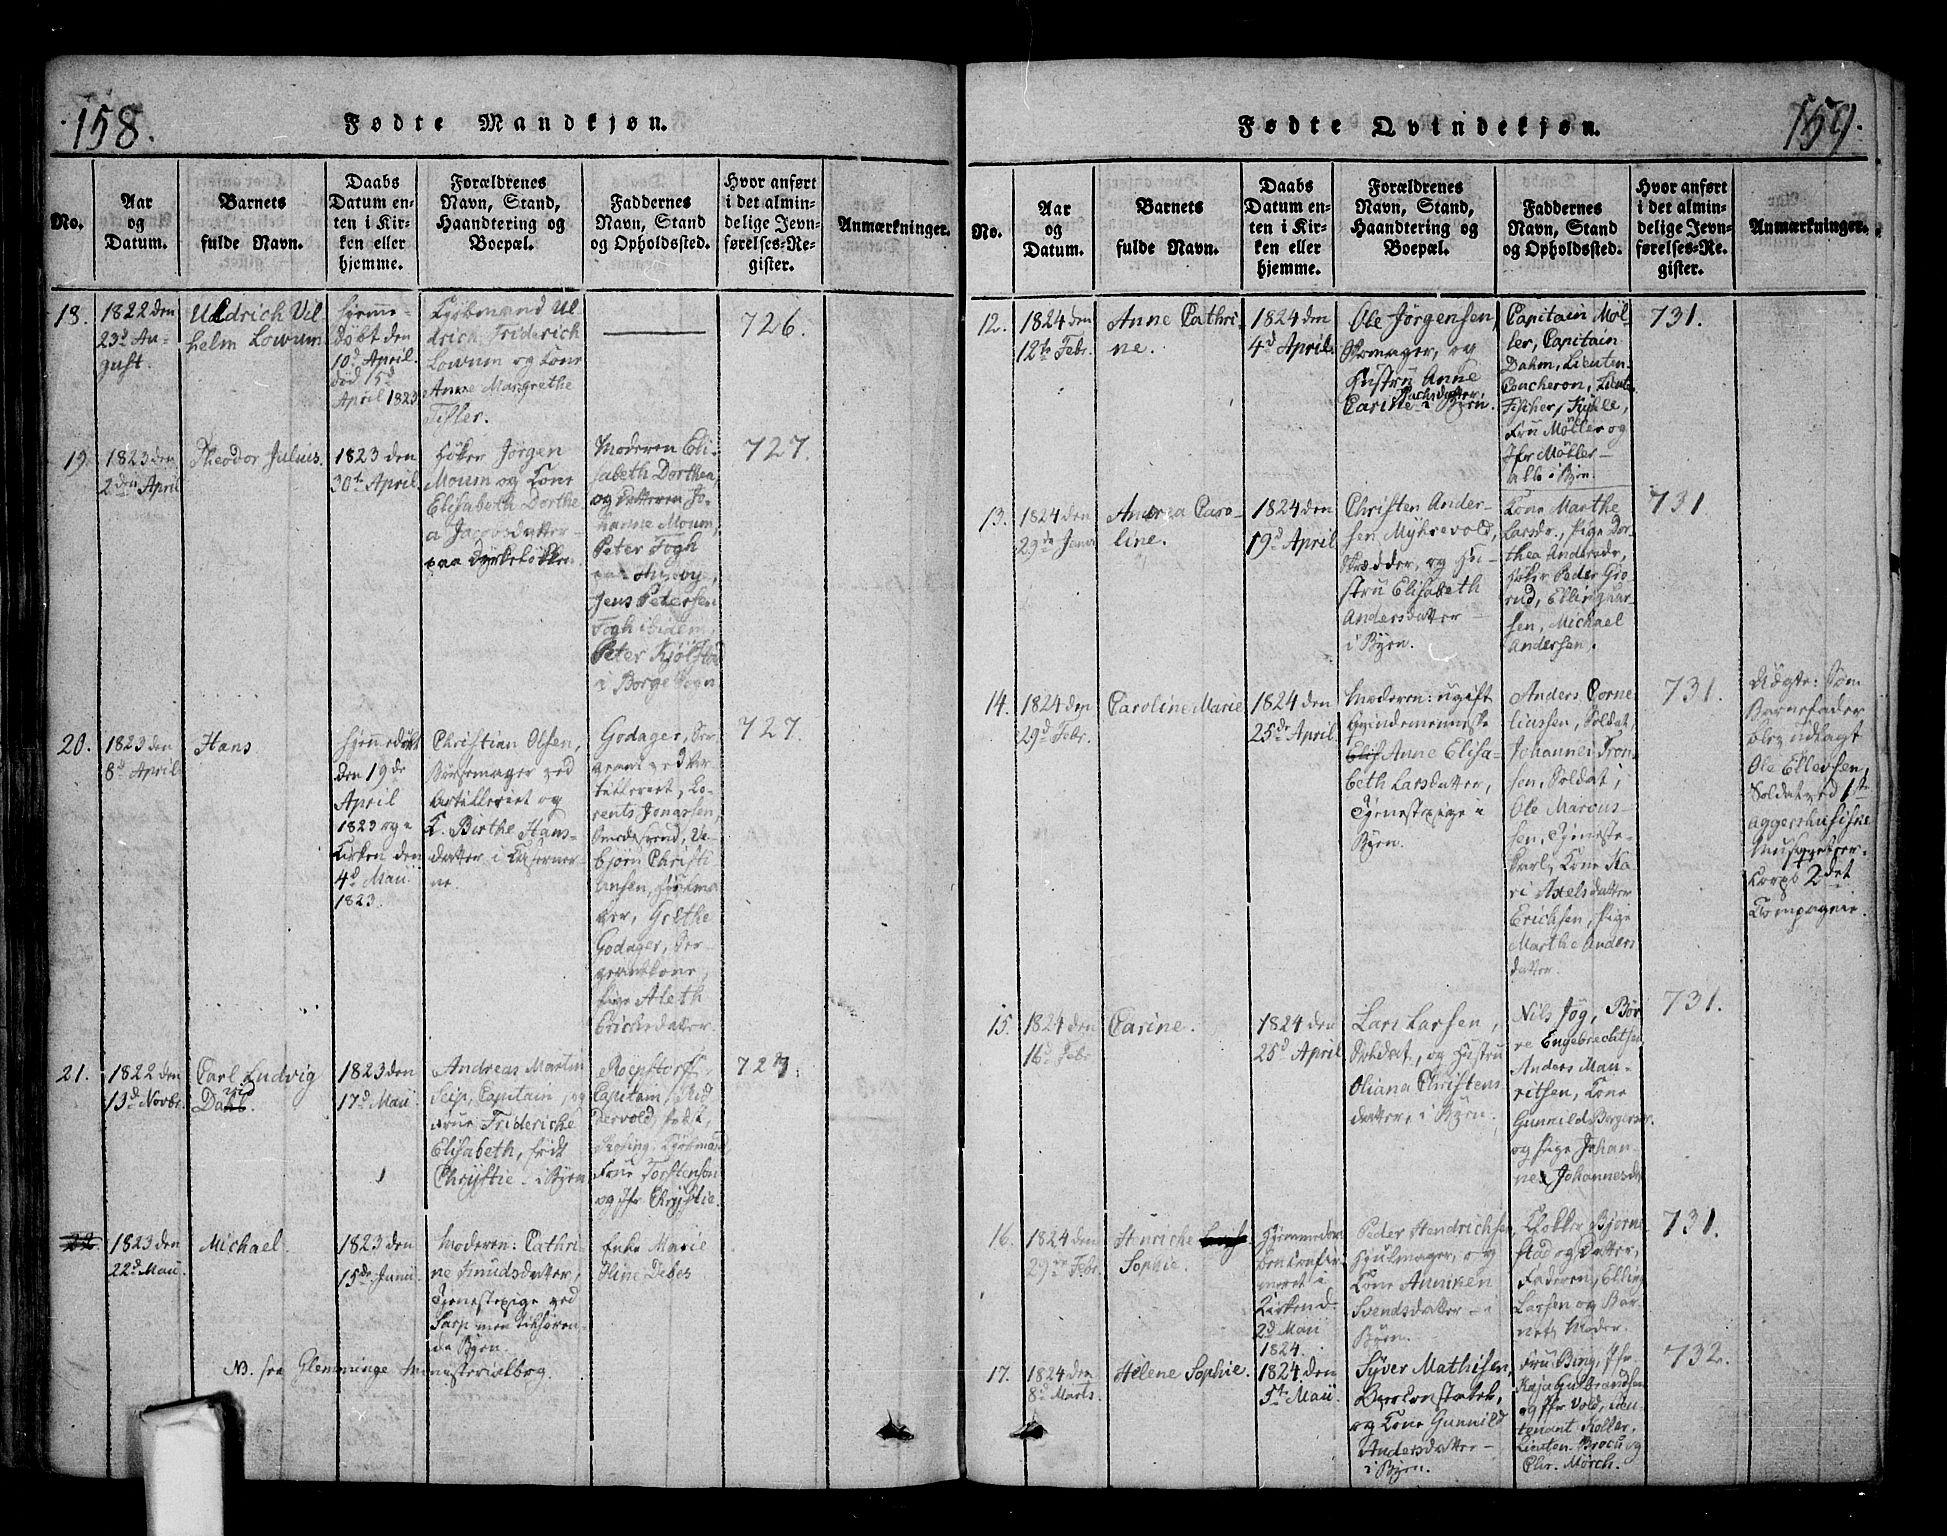 158.
Fødte Mandkjøn.
No.
Aar
og
Datum.
Barnets
fulde Navn.
Daabs
Datum en-
ten i Kir-
ken eller
hjemme.
Forældrenes
Navn, Stand,
Haandtering og
Boepæl.
Faddernes
Navn, Stand
og Opholdssted.
Hvor anført
i det almin-
delige Jevn-
førelses-Re-
gister.
Anmærkninger.
18.
1822 den
23d Au-
gust.
Uldrich Vil-
helm Lowum
hjemme-
døbt den
10d April
død 15d
April 1823
Kjøbmand Ul
drich Friderich
Lowum og Kone
Anne Margrethe
726.
19.
1823 den
2den April
Theodor Julius.
1823 den
30te April.
Høker Jørgen
Moum og Kone
Elisabeth Dorthe
a Jacobsdatter
Moderen Eli-
sabeth Dorthea,
og Datteren Jo-
hanne Moum,
Peter Fogh
Jens Petersen
Fogh ibidem
Peter Kjølstad
i Borge Sogn
727.
20.
1823 den
8d April
Hans
hjemmedøbt
den 19de
April
1823 og i
Kirken den
4d Maii
1823.
Christian Olsen,
ved
Artilleriet og
K. Birthe Hans-
datter i Caserner-
ne.
Godager, Ser-
geant ved Ar-
tilleriet, Lo-
rents Jonassen,
bjørn Christi
ansen, Hjulma
ger, Grethe
Godager, Ser-
geantkone,
Pige Aleth
Erichsdatter.
727.
21.
1822 den
13d Novbr.
Carl Ludvig
Dahl.
1823 den
17d Maii
Andreas Martin
Seip, Capitain, og
Frue Frideriche
Elisabeth, født
Chrystie. i Byen
Roepstorff
Capitain, Rid
dervold,
Kjøbmand,
Frue Torstenson
og Jfr Chrystie.
727.
22.
1823 den
22d Maii
Michael.
1823 den
15de Junii
Moderen: Cathri-
ne Knudsdatter,
Tjenestepige ved
Sarp men tilhøren-
de Byen.
Enke Marie
Stine Debes
NB. see Glemminge Ministerialbog.
159.
Fødte Qvindekjøn.
No.
Aar
og
Datum.
Barnets
fulde Navn.
Daabs
Datum en-
ten i Kir-
ken eller
hjemme.
Forældrenes
Navn, Stand,
Haandtering og
Boepæl.
Faddernes
Navn, Stand
og Opholdssted.
Hvor anført
i det almin-
delige Jevn-
førelses-Re-
gister.
Anmærkninger.
12.
1824 den
12te Febr.
Anne Cathri-
ne.
1824 den
4d April.
Ole Jørgensen,
Skomager, og
Hustru Anne
Carine Isachsdatter i Byen.
Capitain Møl-
ler, Capitain
Dahm, Lieuten.
Coucheron, Lieute.
Fischer, Kyhle,
Fru Møller og
Jfr Møller
alle i Byen.
731.
13.
1824 den
29de Janu
Andrea Caro-
line.
1824 den
19d April
Christen Ander-
sen Myhrevold,
Skrædder, og Hu-
stru Elisabeth
Andersdatter
i Byen.
Kone Marthe
Larsdr., Pige Dor-
thea Andersdr,
Høker Peder Gro
rud,
sen, Michael
Andersen.
731
14.
1824 den
29d Febr.
Caroline Marie
1824 den
25de April.
Moderen: ugift
Qvindemenneske
Elis Anne Elisa-
beth Larsdatter,
Tjenestepige i
Byen.
Anders Corne
liussen, Soldat
Johannes Tron-
sen, Soldat,
Ole Marcus-
sen, Tjeneste-
Karl, Kone Ka
ri Axelsdatter
Erichsen, Pige
Marthe Anders
datter.
731.
Uægte: Som
Barnefader
blev udlagt
Ole Ellevsen,
Soldat ved 1ste
Aggershusiske
Musqueteer-
Corps 2det
Compagnie.
15.
1824 den
16d Febr
Carine.
1824 den
25d April
Lars Larsen,
Soldat, og Hustru
Oliana Christens
datter, i Byen.
Nils Jog, Bør
re Engebrechtsen
Anders Mau-
ritsen, Kone
Gunnild Børgersdr.
og Pige Johan-
nes Johannesdr
731.
16.
1824 den
29de Febr.
Henriche
Sophie.
Hjemmedøbt
confir
meret i
Kirken d.
2d Maii
1824.
Peder Hendrichsen,
Hjulmager, og
Kone Anniken
Svendsdatter i
Byen.
Klokker Bjørne
stad og Datter,
Faderen, Elling
Larsen og Bar
nets Moder.
731.
17.
1824 den
8d Marts.
Helene Sophie.
1824 den
5te Maii.
Syver Mathisen,
og Kone Gunnild
Andersdatter
i Byen.
Fru Bing, Jfr
Kaja Gulbrandsen
og Jfr Vold, Lieu-
tenant Koller,
Lieuten. Brocu og
Chr. Mørch.
732.